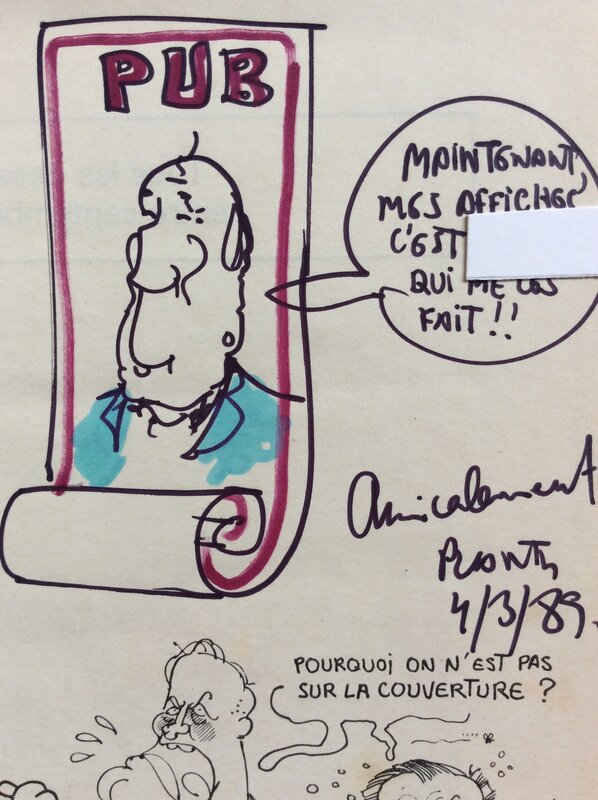 PUB
MAINTENANT,
MES AFFICHES
C'EST
QUI ME LES
FAIT !!
Amicalement
4/3/89.
POURQUOI ON N'EST PAS
SUR LA COUVERTURE ?